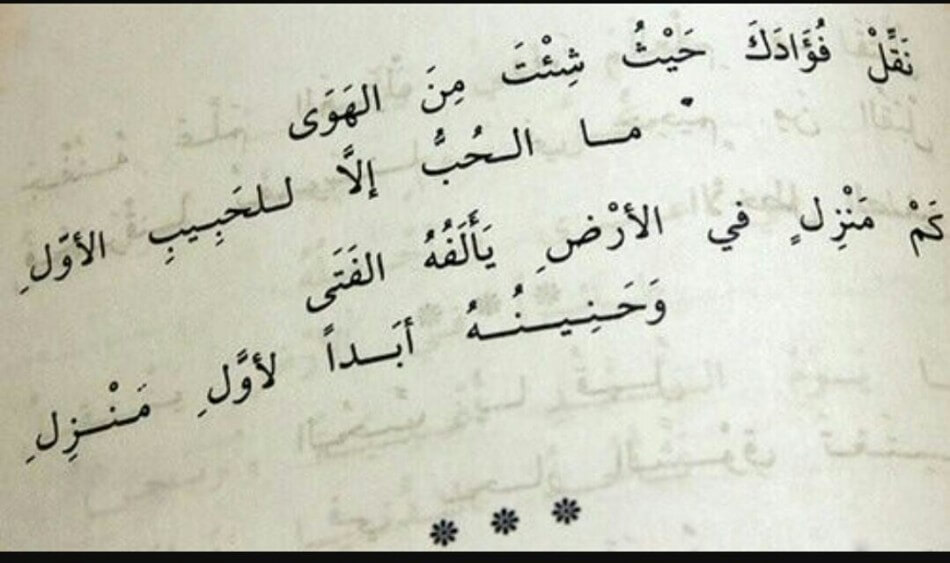 نَقِّلْ فُؤَادَكَ حَيْثُ شِئْتَ مِنَ الهَوَى
ما الحُبُّ إلَّا للحَبِيبِ الأوّلِ
كَمْ مَنْزِلٍ في الأرْضِ يَألَفُهُ الفَتَى
وَحَنِينُهُ أبَداً لأوَّلِ مَنْزِلِ